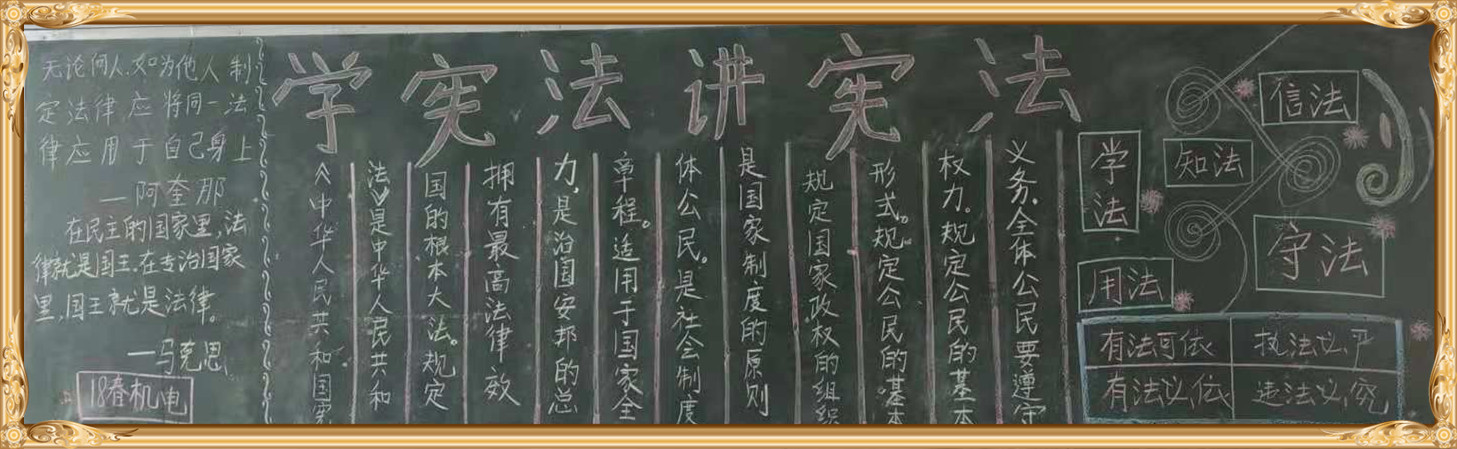 学宪法讲宪法
无论何人,如为他人制
定法律,应将同一法
律应用于自己身上
—阿奎那
在民主的国家里,法
律就是国王.在专治国家
里,国王就是法律。
—马克思
18春机电
《中华人民共和国宪
法》是中华人民共和
国的根本大法。规定
拥有最高法律效
力,是治国安邦的总
章程。适用于国家全
体公民。是社会制度
是国家制度的原则
规定国家政权的组织
形式。规定公民的基本
权力。规定公民的基本
义务,全体公民要遵守
学法
知法
信法
用法
守法
有法可依 执法必严
有法必依 违法必究